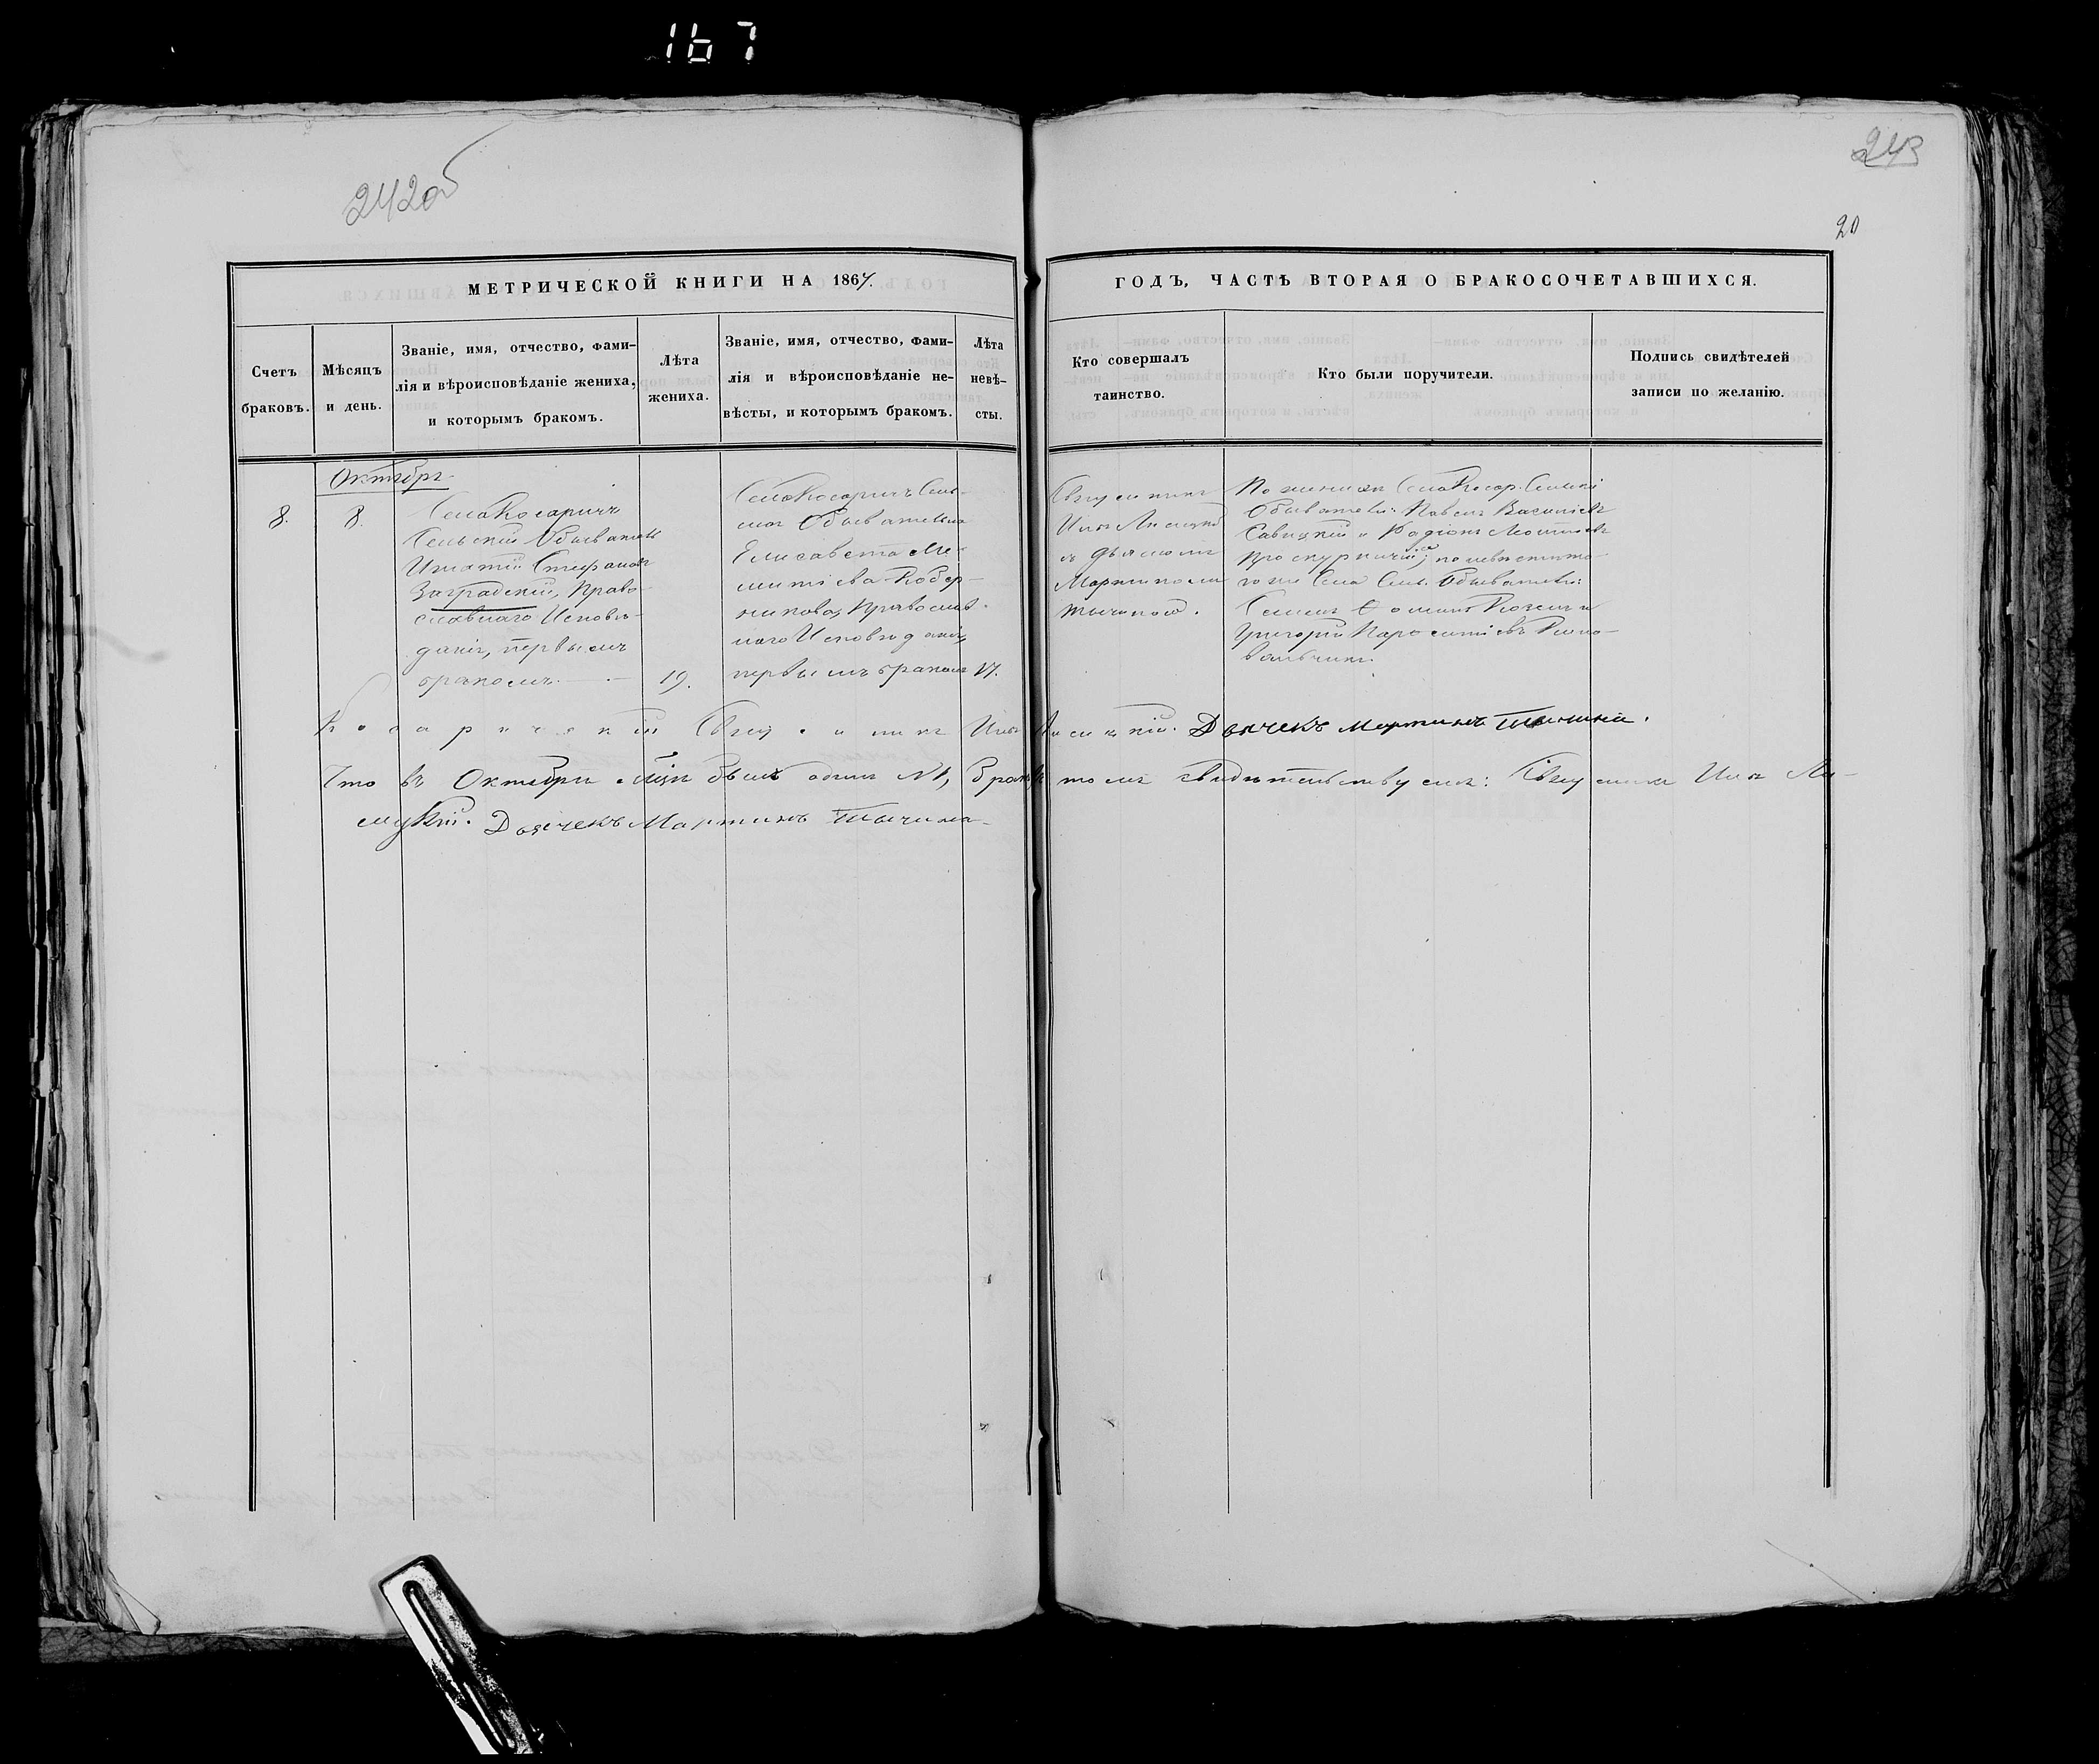 167
242об
243
20
МЕТРИЧЕСКОЙ КНИГИ НА 1867.
ГОДЪ, ЧАСТЬ ВТОРАЯ О БРАКОСОЧЕТАВШИХСЯ.
Счетъ
браковъ.
Мѣсяцъ
и день.
Званіе, имя, отчество, фами-
лія и вѣроисповѣданіе жениха,
и которымъ бракомъ.
Лѣта
жениха.
Званіе, имя, отчество, фами-
лія и вѣроисповѣданіе не-
вѣсты, и которымъ бракомъ.
Лѣта
невѣ-
сты.
Кто совершалъ
таинство.
Кто были поручители.
Подпись свидѣтелей
записи по желанію.
Октябрь
8.
8.
Села Косаричъ
Сельскій Обыватель
Игнатій Стефановъ
Заградскій, Право-
славнаго Исповѣ-
данія, первымъ
бракомъ.
19.
Села Косаричъ Сель-
ская Обывательна
Елисавета
Кобер-
никова, Православ-
наго Исповѣданія,
первымъ бракомъ
17.
Священникъ
Илія Лисицкій
съ дьячкомъ
Мартиномъ
Тычиною.
По женихѣ Села Косар. Сельскіе
Обыватели: Павелъ Василіевъ
Савицкій и Родіонъ
по невѣстѣ то-
го же Села Сел. Обыватели:
Григорій
Косаричскій Священникъ Илія Лисицкій. Дьячекъ Мартинъ Тычина.
Что въ Октябрѣ мцѣ былъ одинъ №1, Бракъ томъ свидѣтельствуемъ: Священникъ Илія Ли-
сицкій. Дьячекъ Мартинъ Тычина